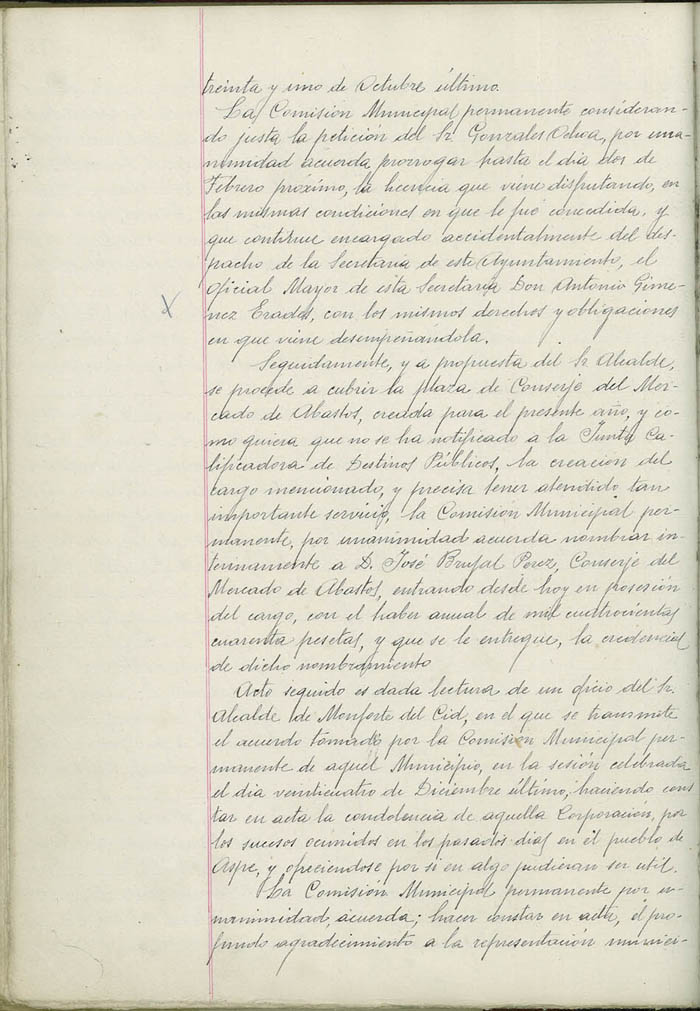 treinta y uno de Octubre último.
La Comisión Municipal permanente consideran-
do justa la petición del Sr. Gonzales Ochoa, por una-
nimidad acuerda prorrogar hasta el dia dos de
Febrero próximo, la licencia que viene disfrutando, en
las mismas condiciones en que le fué concedida, y
que continue encargado accidentalmente del des-
pacho de la Secretaria de este Ayuntamiento, el
Oficial Mayor de esta Secretaria Don Antonio Gime-
nez Erades, con los mismos derechos y obligaciones
en que viene desempeñándola.
Seguidamente, y a propuesta del Sr. Alcalde,
se procede a cubrir la plaza de Conserje del Mer-
cado de Abastos, creada para el presente año, y co-
mo quiera que no se ha notificado a la Junta Ca-
lificadora de Destinos Públicos, la creacion del
cargo mencionado, y precisa tener atendido tan
importante servicio, la Comisión Municipal per-
manente, por unanimidad acuerda nombrar in-
terinamente a D. José Brufal Perez, Conserje del
Mercado de Abastos, entrando desde hoy en posesión
del cargo, con el haber anual de mil cuatrocientas
cuarenta pesetas, y que se le entregue, la credencial
de dicho nombramiento
Acto seguido es dada lectura de un oficio del Sr.
Alcalde de Monforte del Cid, en el que se transmite
el acuerdo tomado por la Comisión Municipal per-
manente de aquel Municipio, en la sesión celebrada
el dia veinticuatro de Diciembre último, haciendo cons
tar en acta la condolencia de aquella Corporación, por
los sucesos ocurridos en los pasados dias en el pueblo de
Aspe, y ofreciendose por si en algo pudieran ser util.
La Comisión Municipal permanente por u-
nanimidad, acuerda; hacer constar en acta, el pro-
fundo agradecimiento a la representación munici-